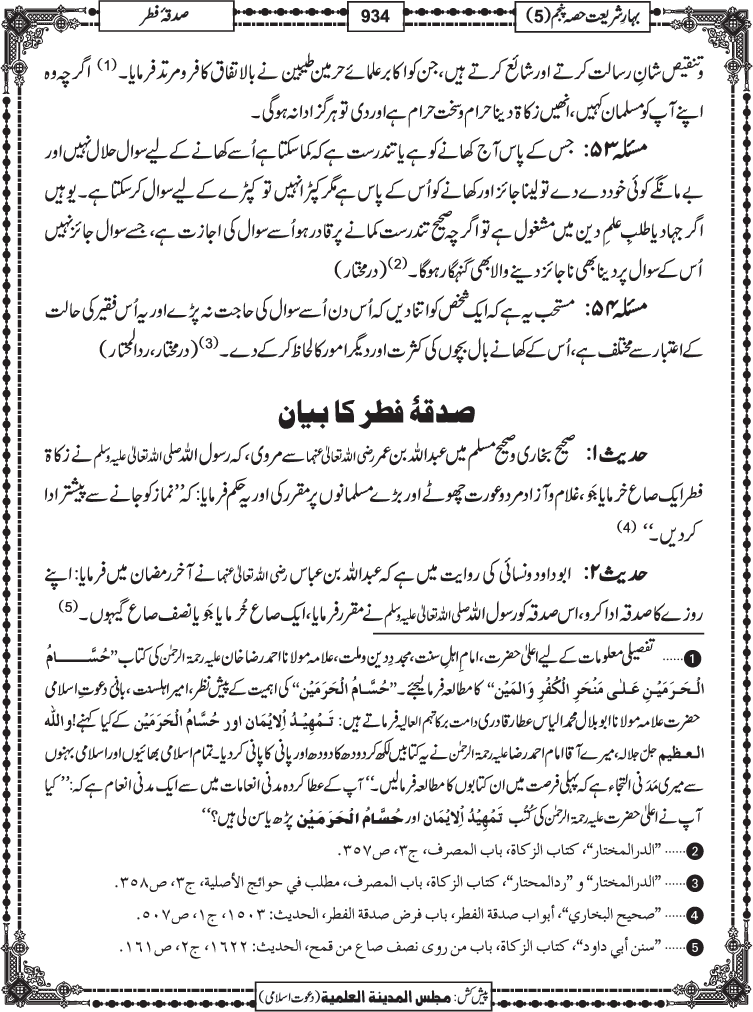 بہارِ شریعت حصہ پنجم (5)
934
صدقۂ فطر
و تنقیص شانِ رسالت کرتے اور شائع کرتے ہیں، جن کو اکابر علمائے حرمین طیبین نے بالاتفاق کافر و مرتد فرمایا۔ (1) اگرچہ وہ
اپنے آپ کو مسلمان کہیں، انھیں زکاۃ دینا حرام و سخت حرام ہے اور دی تو ہرگز ادا نہ ہوگی۔
مسئلہ ۵۳: جس کے پاس آج کھانے کو ہے یا تندرست ہے کہ کما سکتا ہے اُسے کھانے کے لیے سوال حلال نہیں اور
بے مانگے کوئی خود دے دے تو لینا جائز اور کھانے کو اُس کے پاس ہے مگر کپڑا نہیں تو کپڑے کے لیے سوال کرسکتا ہے۔ یوہیں
اگر جہاد یا طلبِ علمِ دین میں مشغول ہے تو اگرچہ صحیح تندرست کمانے پر قادر ہو اُسے سوال کی اجازت ہے، جسے سوال جائز نہیں
اُس کے سوال پر دینا بھی ناجائز دینے والا بھی گنہگار ہوگا۔ (2) (درمختار)
مسئلہ ۵۴: مستحب یہ ہے کہ ایک شخص کو اتنا دیں کہ اُس دن اُسے سوال کی حاجت نہ پڑے اور یہ اُس فقیر کی حالت
کے اعتبار سے مختلف ہے، اُس کے کھانے بال بچوں کی کثرت اور دیگر امور کا لحاظ کرکے دے۔ (3) (درمختار، ردالمحتار)
صدقۂ فطر کا بیان
حدیث ۱: صحیح بخاری و صحیح مسلم میں عبداللہ بن عمر رضی اللہ تعالیٰ عنہما سے مروی، کہ رسول اللہ صلی اللہ تعالیٰ علیہ وسلم نے زکاۃ
فطر ایک صاع خرما یا جَو، غلام و آزاد مرد و عورت چھوٹے اور بڑے مسلمانوں پر مقرر کی اور یہ حکم فرمایا: کہ ’’نماز کو جانے سے پیشتر ادا
کردیں۔‘‘ (4)
حدیث ۲: ابو داود و نسائی کی روایت میں ہے کہ عبداللہ بن عباس رضی اللہ تعالیٰ عنہما نے آخر رمضان میں فرمایا: اپنے
روزے کا صدقہ ادا کرو، اس صدقہ کو رسول اللہ صلی اللہ تعالیٰ علیہ وسلم نے مقرر فرمایا، ایک صاع خُرما یا جَو یا نصف صاع گیہوں۔ (5)
1 ...... تفصیلی معلومات کے لیے اعلیٰ حضرت، امامِ اہلِ سنت، مجددِ دین و ملت، علامہ مولانا احمد رضا خان علیہ رحمۃ الرحمٰن کی کتاب ’’حُسَّامُ
الْحَرَمَیْنِ عَلٰی مَنْحَرِ الْکُفْرِ وَالْمَیْن‘‘ کا مطالعہ فرما لیجئے۔ ’’حُسَّامُ الْحَرَمَیْن‘‘ کی اہمیت کے پیش نظر، امیر اہلسنت، بانی دعوتِ اسلامی
حضرت علامہ مولانا ابوبلال محمد الیاس عطار قادری دامت برکاتہم العالیہ فرماتے ہیں: تَمْهِیْدُ الْاِیْمَان اور حُسَّامُ الْحَرَمَیْن کے کیا کہنے! واللہ
العظیم جل جلالہ، میرے آقا امام احمد رضا علیہ رحمۃ الرحمٰن نے یہ کتابیں لکھ کر دودھ کا دودھ اور پانی کا پانی کردیا۔ تمام اسلامی بھائیوں اور اسلامی بہنوں
سے میری مَدَنی التجاء ہے کہ پہلی فرصت میں ان کتابوں کا مطالعہ فرمالیں۔‘‘ آپ کے عطا کردہ مدنی انعامات میں سے ایک مدنی انعام ہے کہ: ’’کیا
آپ نے اعلیٰ حضرت علیہ رحمۃ الرحمٰن کی کُتُب تَمْهِیْدُ الْاِیْمَان اور حُسَّامُ الْحَرَمَیْن پڑھ یا سن لی ہیں؟‘‘
2 ...... ’’الدرالمختار‘‘، کتاب الزکاۃ، باب المصرف، ج۳، ص۳۵۷.
3 ...... ’’الدرالمختار‘‘ و ’’ردالمحتار‘‘، کتاب الزکاۃ، باب المصرف، مطلب في حوائج الأصلیة، ج۳، ص۳۵۸.
4 ...... ’’صحیح البخاري‘‘، أبواب صدقة الفطر، باب فرض صدقة الفطر، الحدیث: ۱۵۰۳، ج۱، ص۵۰۷.
5 ...... ’’سنن أبي داود‘‘، کتاب الزکاۃ، باب من روی نصف صاع من قمح، الحدیث: ۱۶۲۲، ج۲، ص۱۶۱.
پیش کش: مجلس المدینة العلمیة (دعوتِ اسلامی)